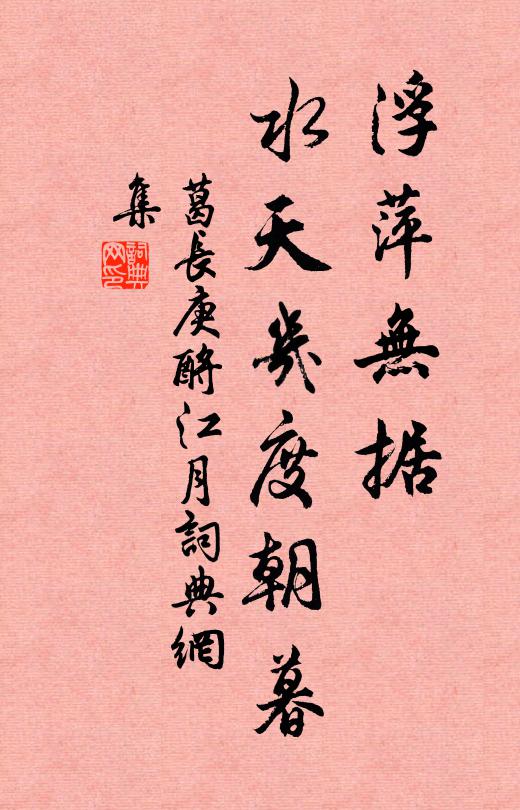 浮萍無据
水天幾度朝暮
葛長庚酹江月詞典網
集
詞典
网印